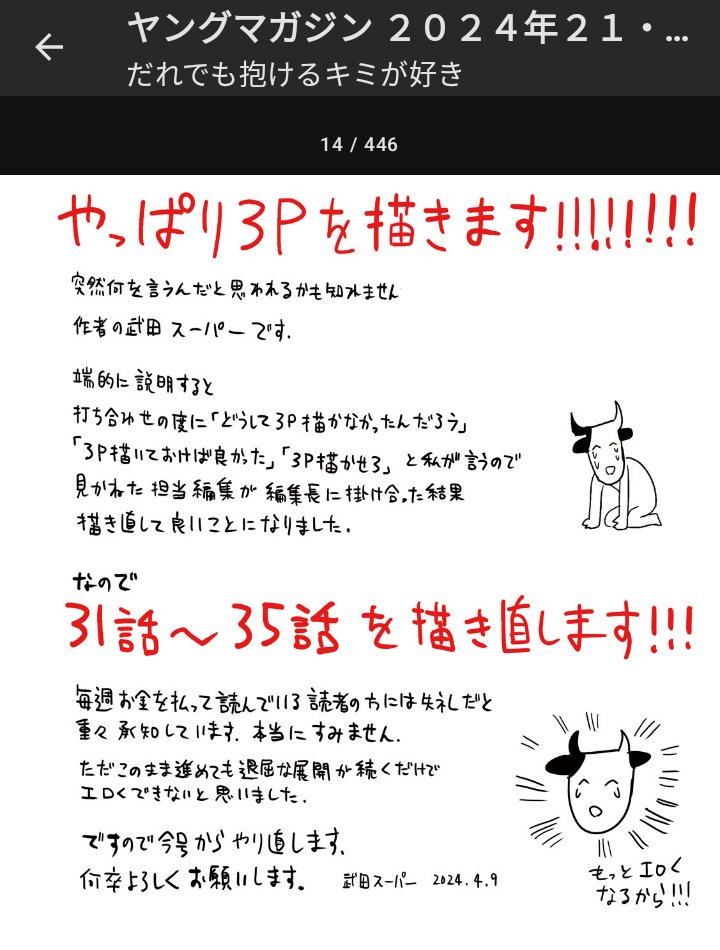 ヤングマガジン ２０２４年２１・...
だれでも抱けるキミが好き
14 / 446
やっぱり3Pを描きます!!!!!!!!!
突然何を言うんだと思われるかも知れません
作者の武田スーパーです.
端的に説明すると
打ち合わせの度に「どうして3P描かなかったんだろう」
「3P描いておけば良かった」「3P描かせろ」と私が言うので
見かねた担当編集が編集長に掛け合った結果
描き直して良いことになりました.
なので
31話〜35話を描き直します!!!
毎週お金を払って読んでいる読者の方には失礼だと
重々承知しています. 本当にすみません.
ただこのまま進めても退屈な展開が続くだけで
エロくできないと思いました.
ですので今号からやり直します.
何卒よろしくお願いします. 武田スーパー 2024.4.9
もっとエロく
なるから!!!